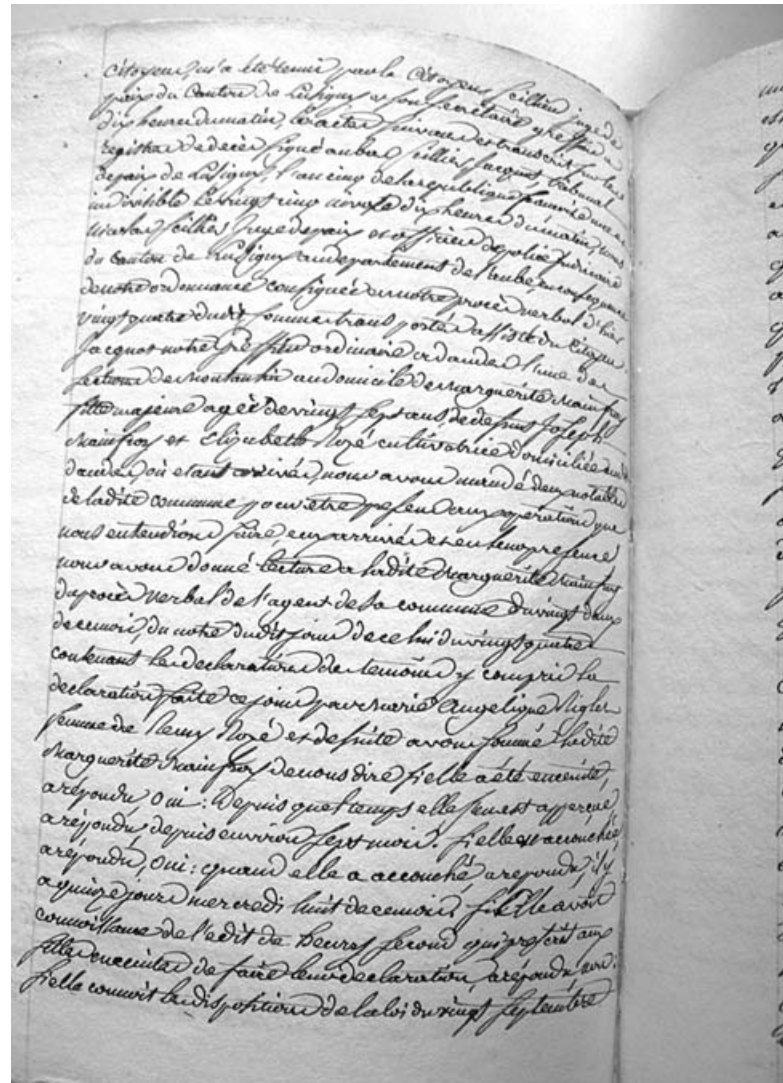 citoyens, m'a été remis par le citoyen Scillier juge de
paix du Canton de Lusigny et son secrétaire greffier a
dix heures du matin, les actes suivans et transcrit sur le
registre de decès signé au bas Scillier, Jacquot, tribunal
de paix de Lusigny, l'an cinq de la republique francoise une et
indivisible le vingt cinq dix heures du matin, nous
Scillier Juge de paix et officier de police judiciaire
du Canton de Lusigny au departement de l'aube en consequence
de notre ordonnance consignée en notre procès verbal d'hier
vingt quatre dudit sommes transporté assisté du citoyen
Jacquot notre greffier ordinaire a daudes l'une des
sections de Montaulin au domicile de Marguerite Mainfroy
fille majeure agée de vingt sept ans, de defunt Joseph
Mainfroy et Elizabette Rozé cultivatrice domiciliée audit
daudes, où etant arrivés, nous avons mandé deux notables
de ladite commune pour etre present aux operations que
nous entendions faire, eux arrivés et en leur presence
nous avons donné lecture a ladite Marguerite Mainfroy
du procès verbal de l'agent de sa commune du vingt deux
de ce mois, du notre dudit jour de celui du vingt quatre
contenant les declarations de temoins y compris la
declaration faite ce jour par Marie Angelique
femme de Remy Rozé et de suite avons sommé ladite
Marguerite Mainfroy de nous dire si elle a été enceinte,
a repondu oui : Depuis quel temps elle s'en est apperçue
a repondu depuis environ sept mois. si elle est accouchée
a repondu, oui : quand elle a accouché a repondu, il y
a quinze jours mercredi huit de ce mois si elle avoit
connoissance de l'edit de henry second qui prescrit aux
filles enceintes de faire leur declaration, a repondu non :
si elle connoit les dispositions de la loi du vingt septembre